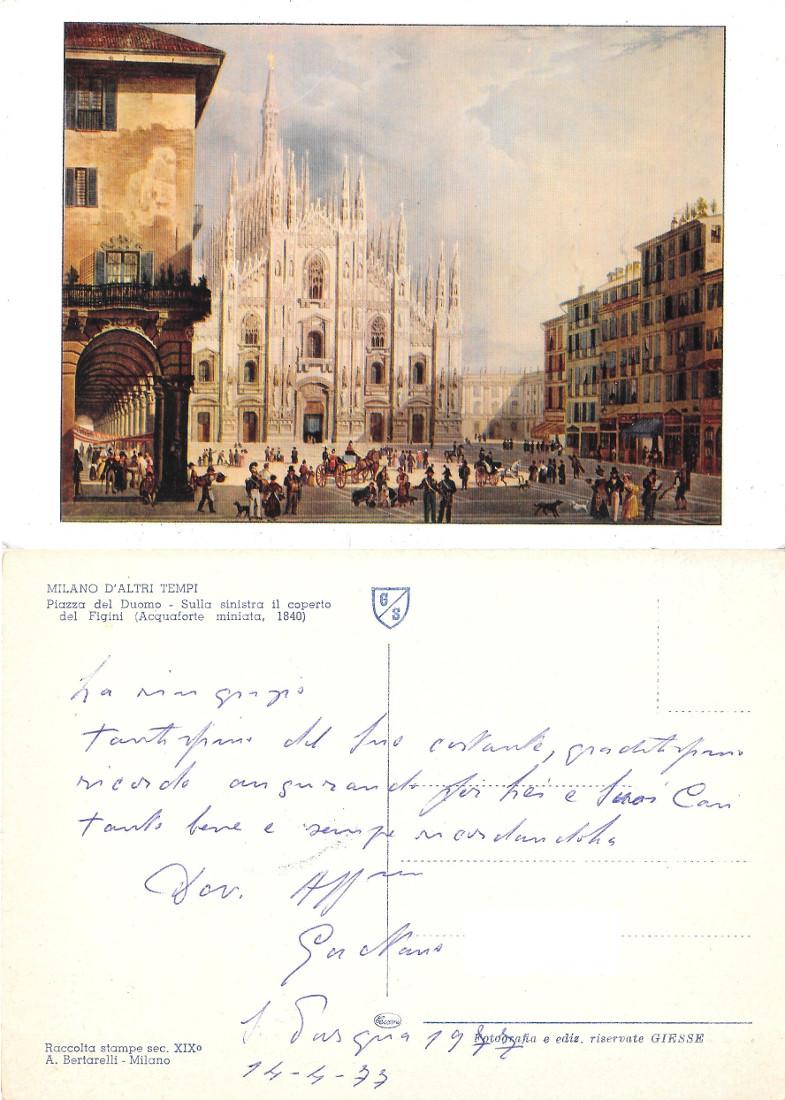 MILANO D'ALTRI TEMPI
Piazza del Duomo - Sulla sinistra il coperto
del Figini (Acquaforte miniata, 1840)
G
S
La ringrazio
tantissimo del Suo costante, graditissimo
ricordo augurando per Lei e Suoi Cari
tanto bene e sempre ricordandoLa
Dev. Aff
Gaetano
S. Pasqua 1977
14-4-77
Raccolta stampe sec. XIXº
A. Bertarelli - Milano
Fotografia e ediz. riservate GIESSE